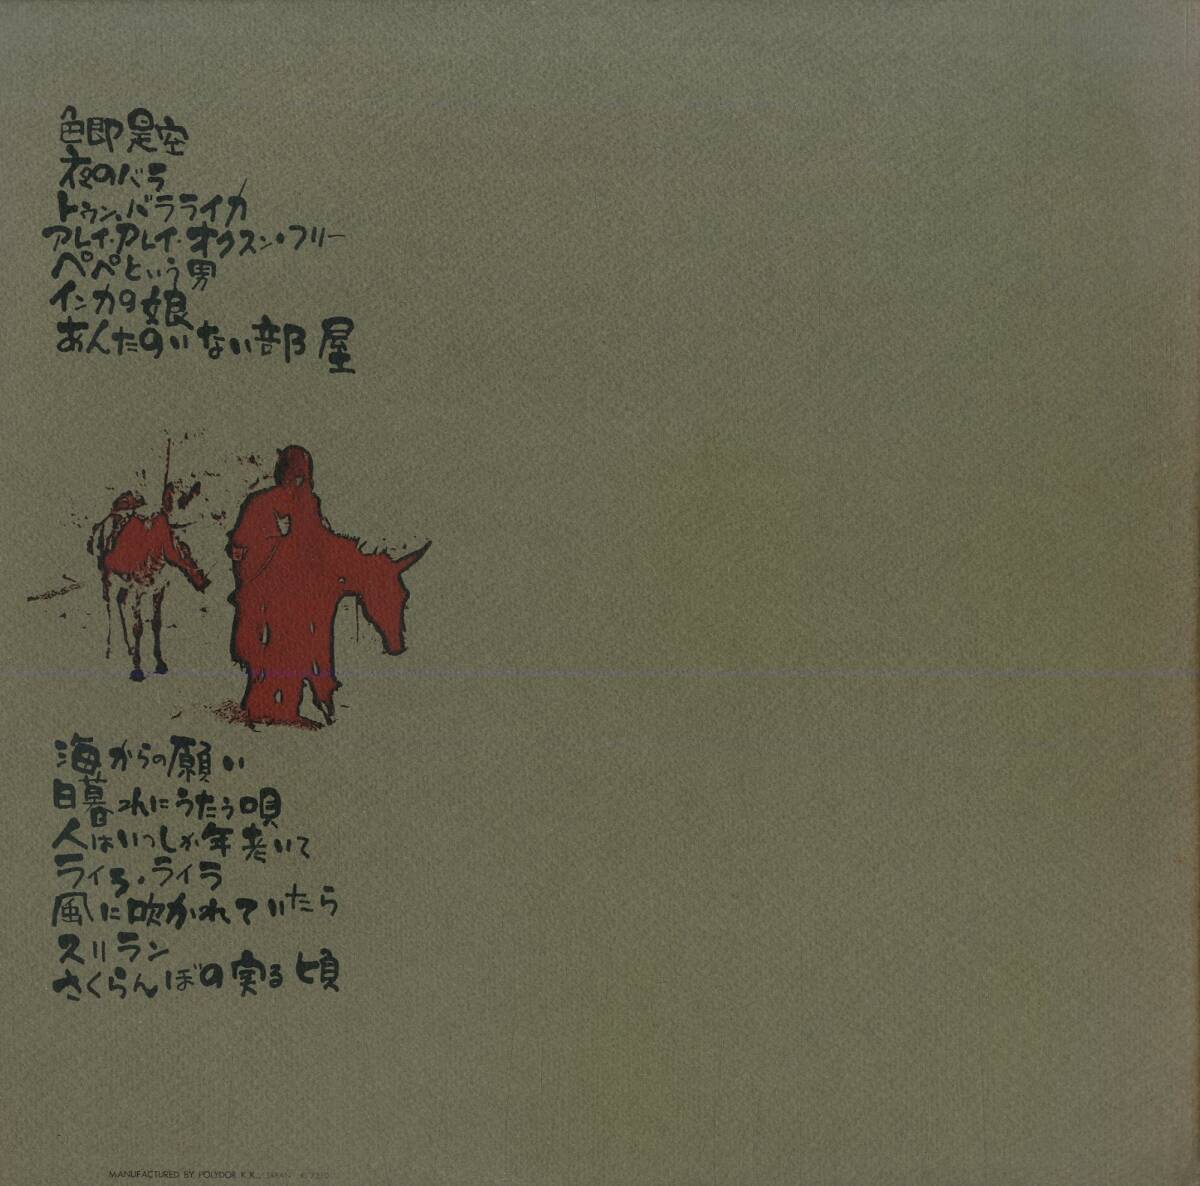 色即是空
夜のバラ
トゥン、バラライカ
アレイ・アレイ・オクスン・フリー
ペペという男
インカの娘
あんたのいない部屋
海からの願い
日暮れにうたう唄
人はいつしか年老いて
ライラ・ライラ
風に吹かれていたら
スリラン
さくらんぼの実る頃
MANUFACTURED BY POLYDOR K.K., JAPAN